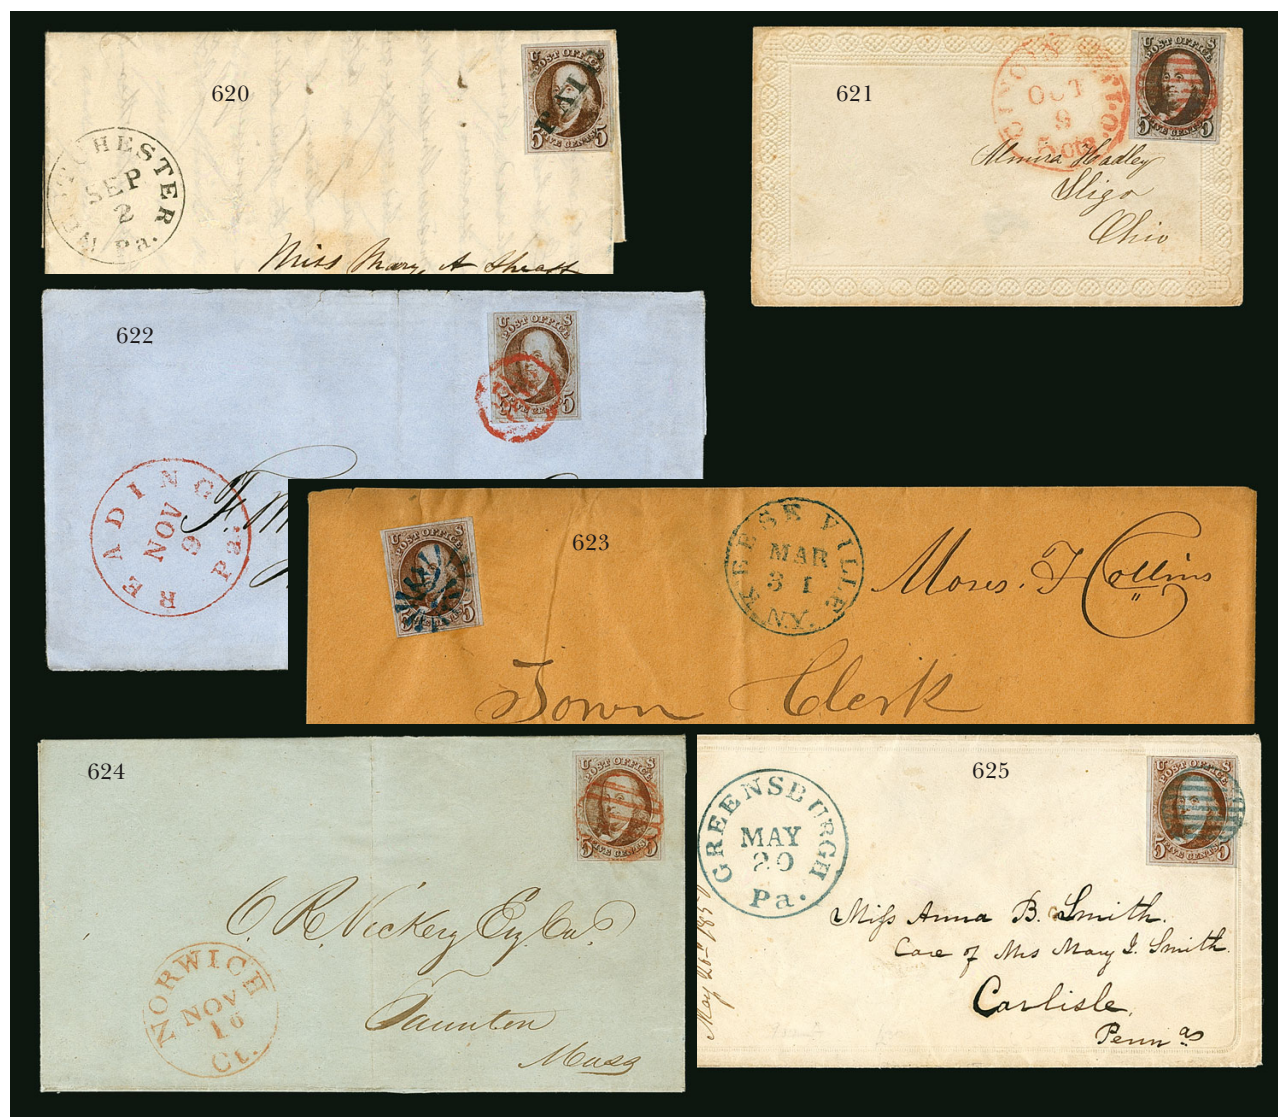 620
U S
POST OFFICE
PAID
5 FIVE CENTS 5
WESTCHESTER
SEP
2
Pa.
Miss Mary A
621
U S
POST OFFICE
5 FIVE CENTS 5
O.
OCT
9
5 cts
Almira Hadley
Sligo
Ohio
622
U S
POST OFFICE
FIVE CENTS 5
READING
NOV
9
Pa.
623
U S
POST OFFICE
5 5
KEESEVILLE
MAR
31
N.Y.
Moses. T Collins
Town Clerk
624
U S
POST OFFICE
5 FIVE CENTS 5
C. R. Vickery Esq
Taunton
Mass
NORWICH
NOV
16
Ct.
625
U S
POST OFFICE
5 FIVE CENTS 5
GREENSBURGH
MAY
29
Pa.
Miss Anna B. Smith.
Care of Mrs Mary I. Smith
Carlisle,
Penn as
May 26th 1850